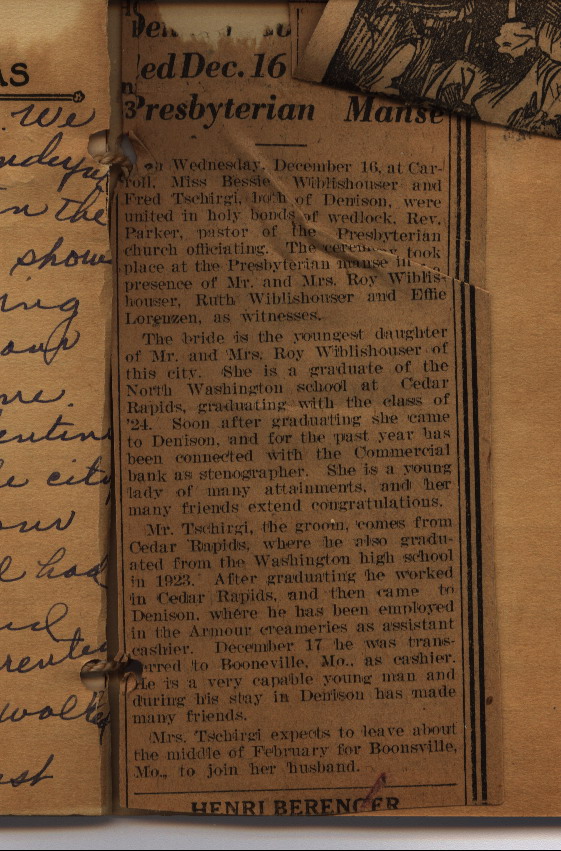 AS
We
in the
show
ing
our
me.
entin
e city
our
had
wal
ed Dec. 16
Presbyterian Manse
on Wednesday, December 16, at Car-
roll, Miss Bessie Wiblishouser and
Fred Tschirgi, both of Denison, were
united in holy bonds of wedlock, Rev.
Parker, pastor of the Presbyterian
church officiating. The ceremony took
place at the Presbyterian manse in
presence of Mr. and Mrs. Roy Wiblis-
houser, Ruth Wiblishouser and Effie
Lorenzen, as witnesses.
The bride is the youngest daughter
of Mr. and Mrs. Roy Wiblishouser of
this city. She is a graduate of the
North Washington school at Cedar
Rapids, graduating with the class of
'24. Soon after graduating she came
to Denison, and for the past year has
been connected with the Commercial
bank as stenographer. She is a young
lady of many attainments, and her
many friends extend congratulations.
Mr. Tschirgi, the groom, comes from
Cedar Rapids, where he also gradu-
ated from the Washington high school
in 1923. After graduating he worked
in Cedar Rapids, and then came to
Denison, where he has been employed
in the Armour creameries as assistant
cashier. December 17 he was trans-
ferred to Booneville, Mo., as cashier.
He is a very capable young man and
during his stay in Denison has made
many friends.
Mrs. Tschirgi expects to leave about
the middle of February for Boonsville,
Mo., to join her husband.
HENRI BERENGER